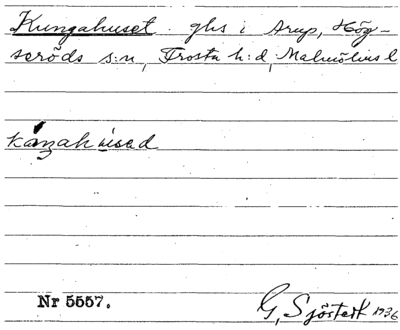 Kungahuset ghs i Arup, Hög-
seröds s:n, Frosta h:d, Malmöhus l
kåŋahused
Nr 5557.
G. Sjöstedt 1936